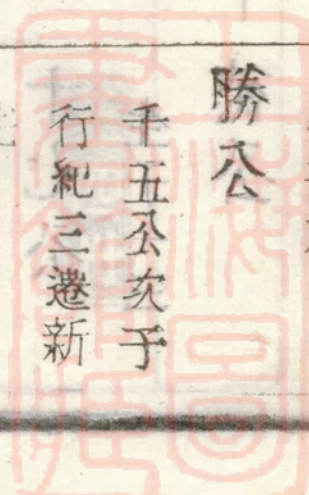 勝公
千五公次子
行紀三遷新